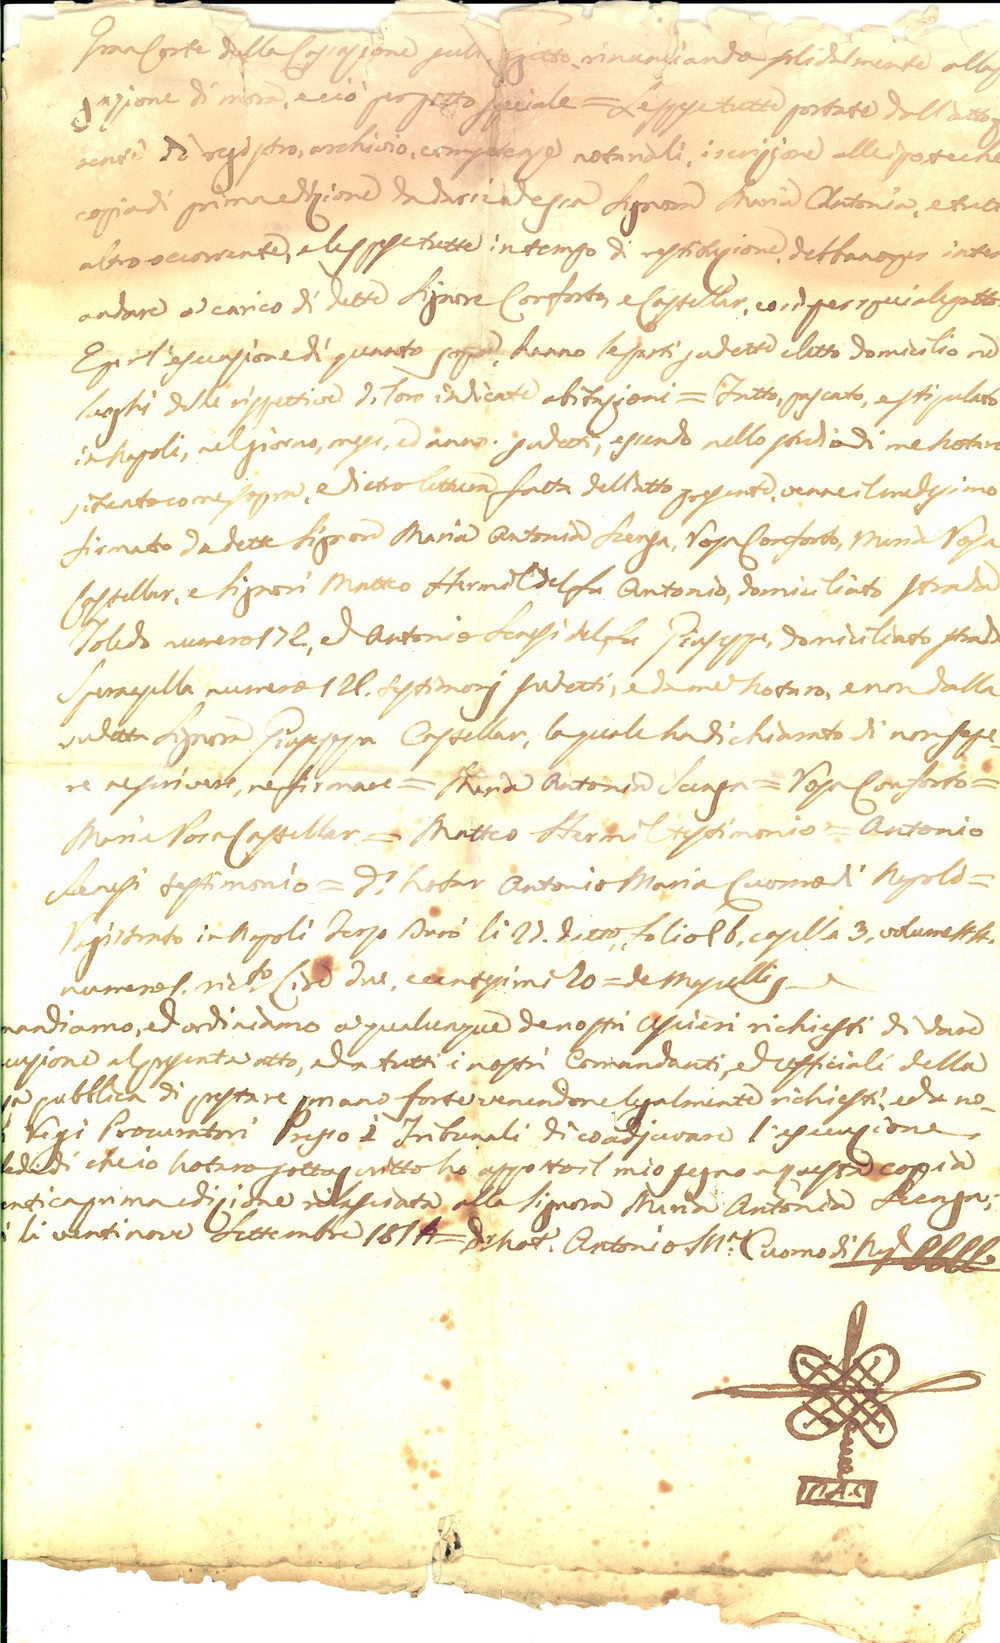 Gran Corte della Cassazione sull' oggetto, rinunciando solidalmente alla
di mora, e ciò per patto speciale = Le spese tutte portate dall'atto
sente di registro, archivio, competenze notariali, iscrizione alle ipoteche
copia di prima edizione da darsi ad essa Signora Maria Antonia, e tutt
altro occorrente, e le spese tutte in tempo di restituzione, debbano
andare a carico di dette Signore Conforto, e Castellar, così per special patto
E per l'esecuzione di quanto sopra, hanno le parti sudette eletto domicilio ne'
luoghi delle rispettive di loro indicate abitazioni = Fatto, passato, e stipulato
in Napoli, nel giorno, mese, ed anno sudetti, essendo nello studio di me Notaro
situato come sopra, e dietro lettura fatta dell'atto presente, venne il medesimo
firmato da dette Signore Maria Antonia Scenga, Rosa Conforto, Maria Rosa
Castellar, e Signori Matteo Hermil del fu Antonio, domiciliato strada
Toledo numero 172, ed Antonio Senesi del fu Giuseppe, domiciliato strada
Speranzella numero 128. testimonj sudetti, e da me Notaro, e non dalla
sudetta Signora Giuseppa Castellar, la quale ha dichiarato di non sape-
re nè scrivere, nè firmare = Maria Antonia Scenga = Rosa Conforto =
Maria Rosa Castellar = Matteo Hermil testimonio = Antonio
Senesi testimonio = Dr Notar Antonio Maria Cuomo di Napoli =
Registrato in Napoli Terzo Burò li 27. detto, folio 86, casella 3, volume
numero ric.to Lire due, e centesimi 20 = de Masellis
mandiamo, ed ordiniamo a qualunque de nostri Uscieri richiesti di dare
cuzione al presente atto, ed a tutti i nostri Comandanti, ed Officiali della
za pubblica di prestare mano forte venendone legalmente richiesti, ed a no-
i Regj Procuratori Presso i Tribunali di coadjuvare l'esecuzione.
fede di che io Notaro sottoscritto ho apposto il mio segno a questa copia
entica prima edizione rilasciata alla Signora Maria Antonia Scenga;
i li ventinove Settembre 1814 = Dr Not. Antonio M.a Cuomo di Nap.
N.A.C.